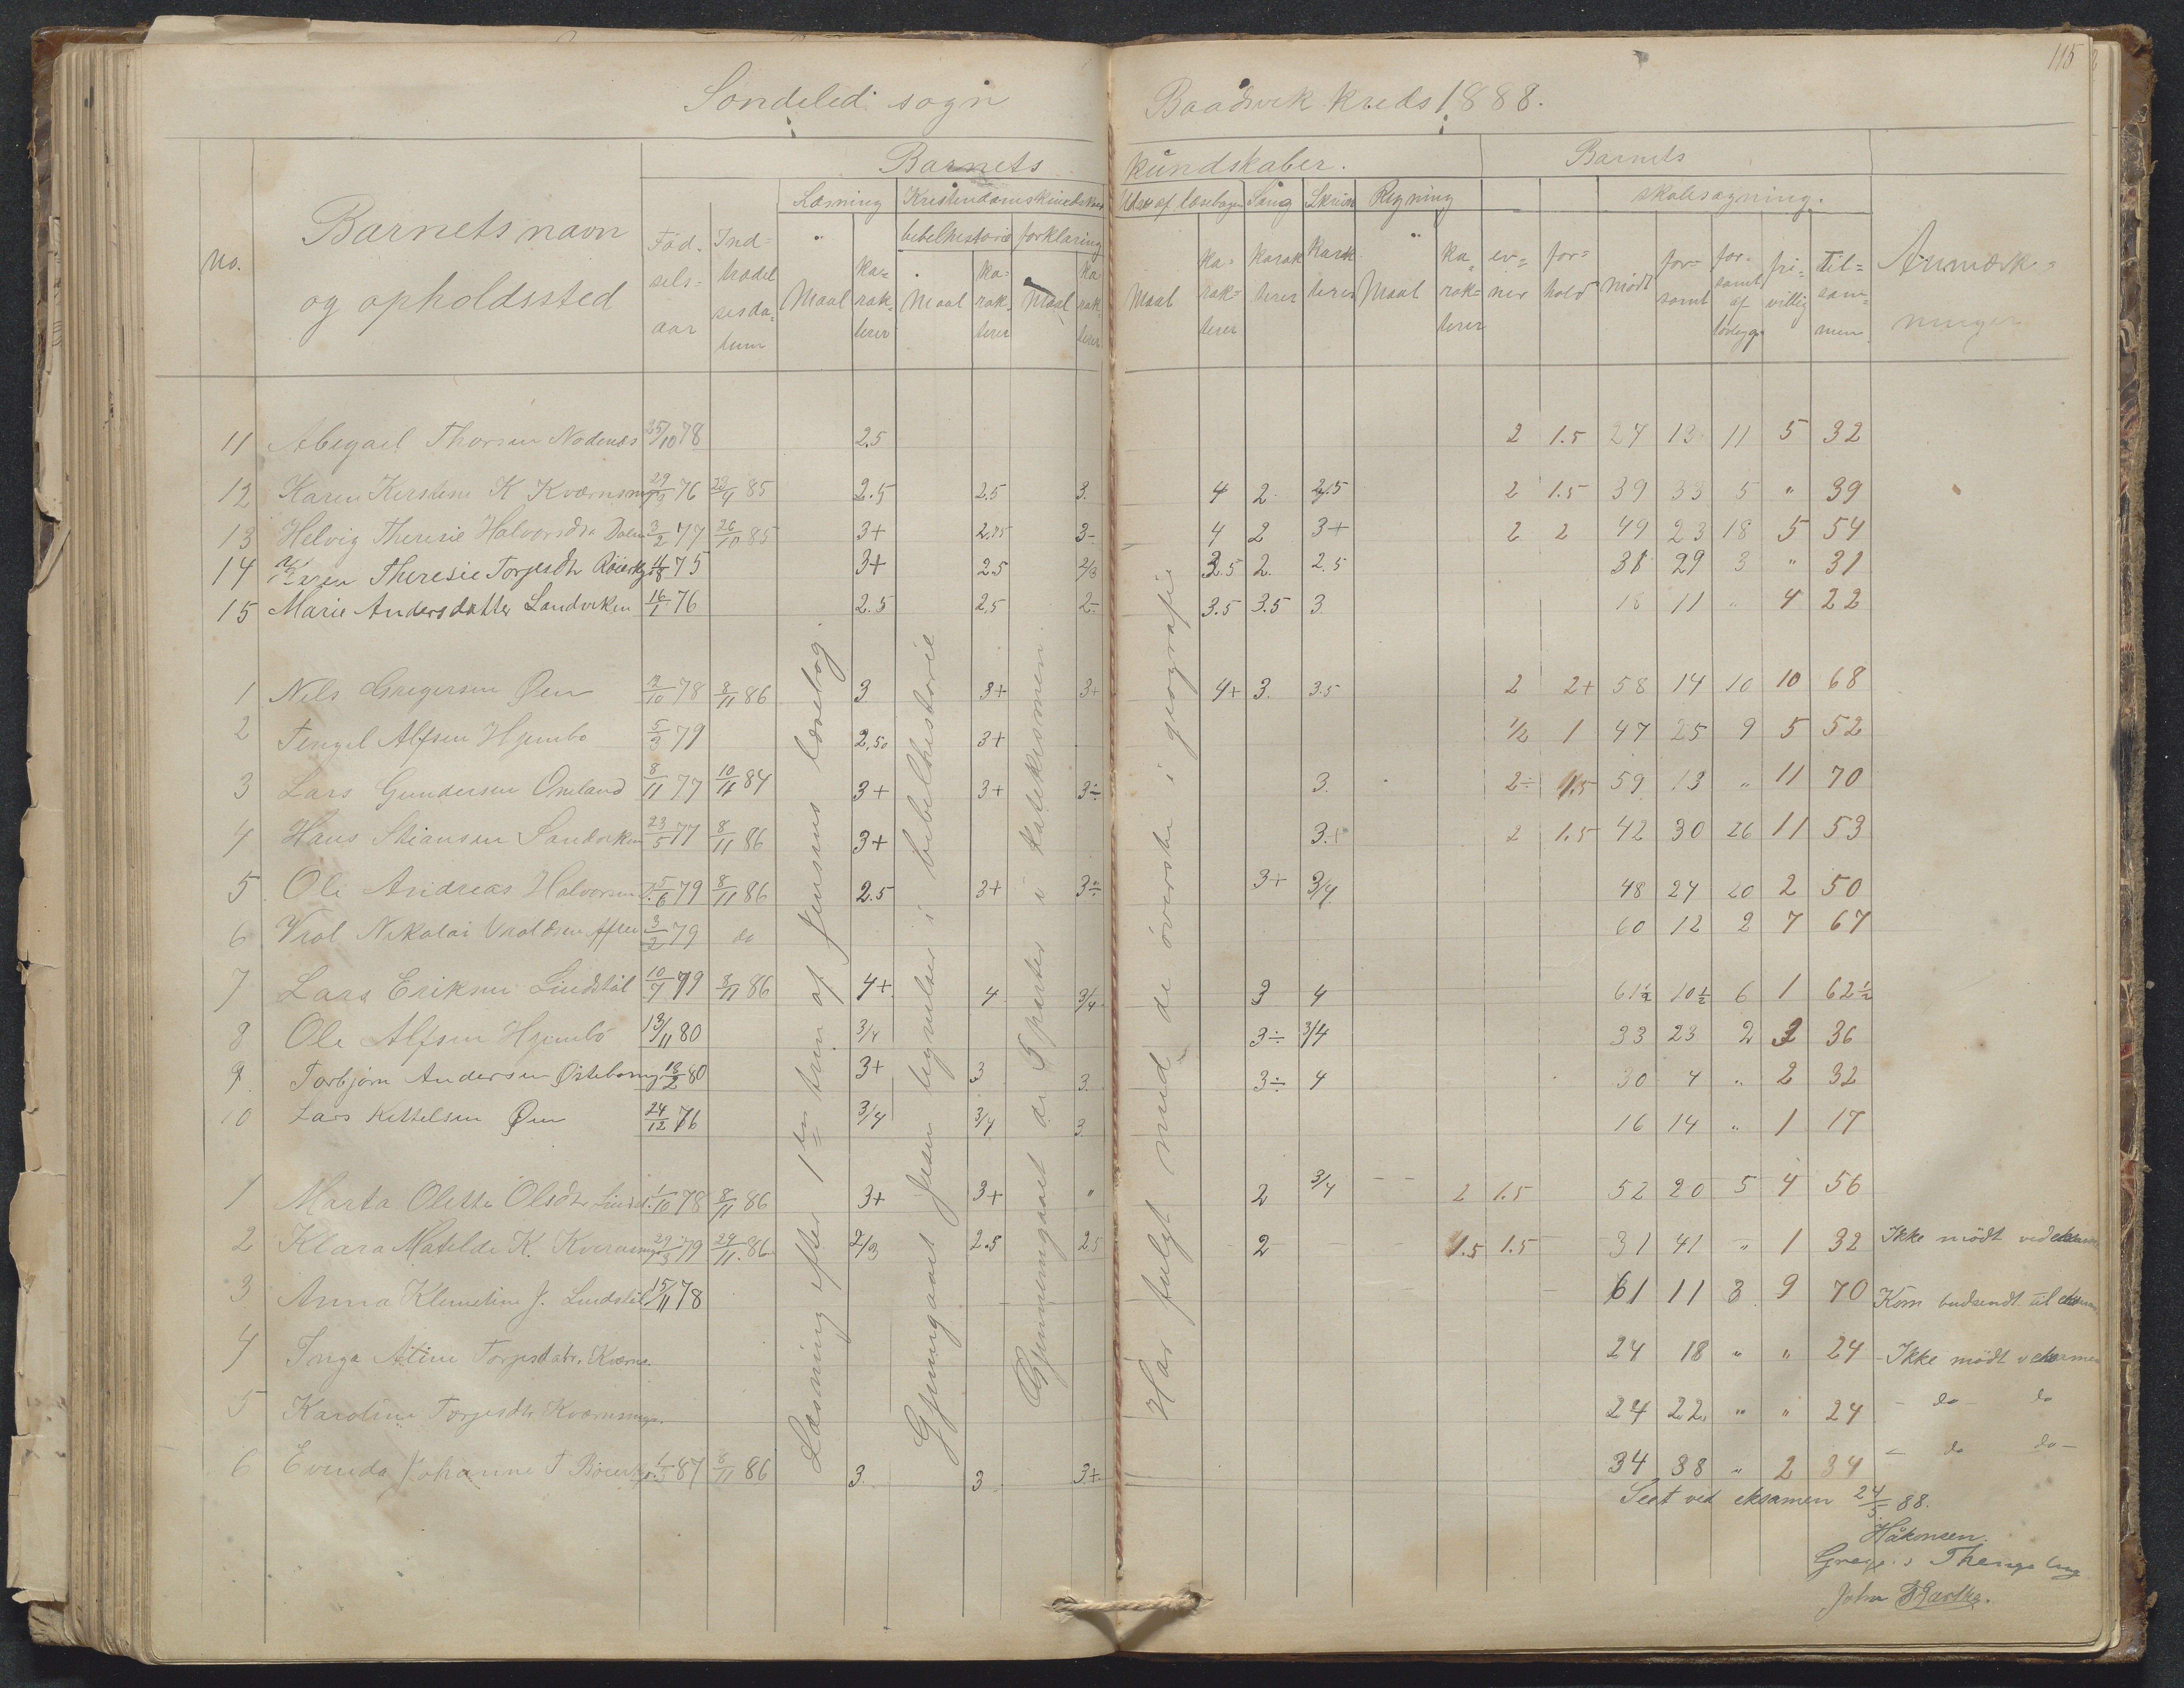 115
Søndeled sogn Baadsvik kreds 1888.
Barnets kundskaber. Barnets
Læsning Kristendomskundskab Udv. af læsebogen Sang Skrivn Regning skolesøgning.
bibelhistorie forklaring
No. Barnets navn og opholdssted Fødselsaar Indtrædelsesdatum Maal karakterer Maal karakterer Maal karakterer Maal karakterer karakterer karakterer Maal karakterer evner forhold mødt forsømt forsømt af lovlyg frivillig tilsammen Anmærkninger
11 Abegael Thorsen Nodenæs 25/10 78 2.5 2 1.5 27 13 11 5 32
12 Karen Kirstine K Kværnsmyr 29/3 76 23/4 85 2.5 2.5 3. 4 2. 2.5 2 1.5 39 33 5 " 39
13 Helvig Theresie Halvorsdtr Dalen 3/2 77 26/10 85 3+ 2.75 3- 4 2 3+ 2 2 49 23 18 5 54
14 Karen Theresie Torjesdtr Röierk 11/8 75 3+ 2.5 2/3 3.5 2. 2.5 31 29 3 " 31
15 Marie Andersdatter Landviken 16/1 76 2.5 2.5 2- 3.5 3.5 3 18 11 " 4 22
1 Nels Gregersen Øen 12/10 78 8/11 86 3 3+ 3+ 4+ 3. 3.5 2 2+ 58 14 10 10 68
2 Tengel Alfsen Hjembo 5/3 79 2,50 3+ 1/2 1 47 25 9 5 52
3 Lars Gundersen Omland 8/11 77 10/11 84 3+ 3+ 3÷ 3. 2÷ 1.5 59 13 " 11 70
4 Hans Stiansen Sandviken 23/5 77 8/11 86 3+ 3.+ 2 1.5 42 30 26 11 53
5 Ole Andreas Halvorsen 5/6 79 8/11 86 2.5 3+ 3÷ 3+ 3/4 48 24 20 2 50
6 Vrol Nikolai Vroldsen 3/2 79 do 60 12 2 7 67
7 Lars Eriksen Lindstöl 10/7 79 8/11 86 4+ 4 3/4 3 4 61½ 10½ 6 1 62½
8 Ole Alfsen Hjembo 13/11 80 3/4 3÷ 3/4 33 23 2 3 36
9 Torbjørn Andersen Østebømyr 18/2 80 3+ 3 3. 3÷ 4 30 4 " 2 32
10 Lars Kittelsen Øen 24/12 76 3/4 3/4 3 16 14 " 1 17
1 Marta Olette Olsdtr Linds 1/10 78 8/11 86 3+ 3+ " 2 3/4 2 1.5 52 20 5 4 56
2 Klara Matilde K. Kværnsmyr 29/3 79 29/11 86 2/3 2.5 2.5 2 1.5 1.5 31 41 " 1 32 Ikke mødt ved eksamen
3 Anna Klemetine J. Lindstöl 15/11 78 61 11 3 9 70 Kom budsendt til eksamen
4 Inga Atine Torjesdatr. Kværns 24 18 " " 24 Ikke mødt v eksamen
5 Karoline Torjesdtr Kværnsmyr. 24 22 " " 24 - do - do
6 Evinda Johanne T Röierk 1/3 87 8/11 86 3. 3 3+ 34 38 " 2 34 - do do -
Læsning efter 1ste trin af Jensens læsebog.
Gjennemgaaet Jesu lignelser i bibelhistorie
Gjennemgaaet de 5 parter i katekismen.
Har fulgt med de øverste i geografie
Seet ved eksamen 24/5 88.
Håkonsen.
Gregers Thengels
John